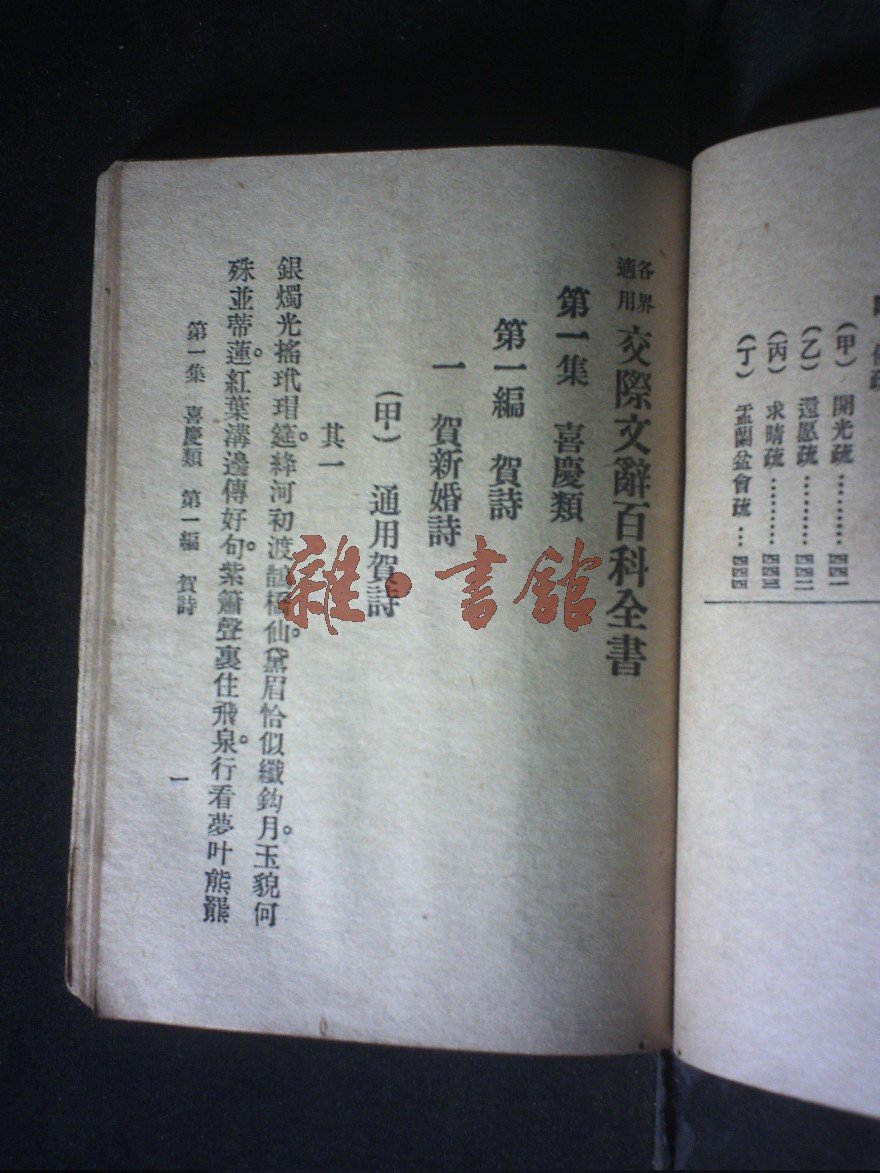 (甲) 開光疏………四四一
(乙) 還愿疏………四四二
(丙) 求晴疏………四四三
(丁) 盂蘭盆會疏…四四四
各界適用 交際文辭百科全書
第一集 喜慶類
第一編 賀詩
一 賀新婚詩
(甲) 通用賀詩
其一
銀燭光搖玳瑁筵。絳河初渡誼橋仙。黛眉恰似纖鈎月。玉貌何
殊並蒂蓮。紅葉溝邊傳好句。紫簫聲裏住飛泉。行看夢叶熊羆
第一集 喜慶類 第一編 賀詩
一
雜·書館